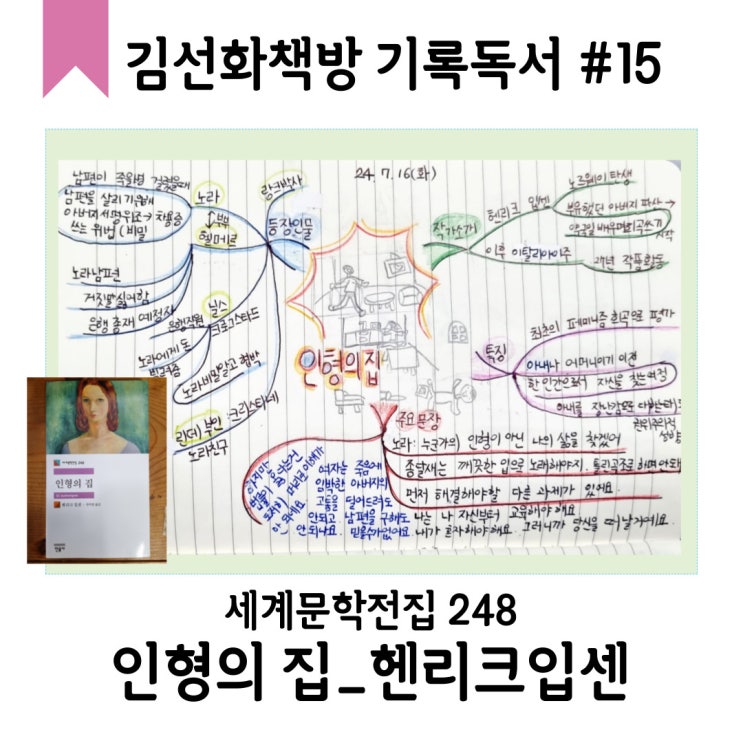 김선화책방 기록독서 #15
24. 7. 16(화)
남편이 죽을병 걸렸을때
남편을 살리기위해
아버지 서명위조→차용증
쓰는 위법 (비밀
노라
부부
헬메르
랑크박사
등장인물
노라남편
거짓말싫어함
은행 총재 예정자
은행직원
닐스
크로그스타드
노라에게 돈
빌려줌
노라비밀알고 협박
린데 부인: 크리스티네
노라친구
인형의집
작가소개
헨리크 입센
노르웨이 탄생
부유했던 아버지 파산→
시작
이후 이탈리아이주
27년 작품활동
특징
최초의 페미니즘 희곡으로 평가
아내나 어머니이기 이전
한 인간으로서 자신을 찾는여정
주요문장
노라: 누군가의 인형이 아닌 나의 삶을 찾겠어
종달새는 깨끗한 입으로 노래해야지. 틀린곡조로 하면 안돼
먼저 해결해야할 다른 과제가 있어요.
나는 나 자신부터 교육해야해요.
내가 혼자해야해요. 그러니까 당신을 떠날거예요.
여자는 죽음에
임박한 아버지의
고통을 덜어드려도
안되고 남편을 구해도
안 되나요. 믿을수가없어요
세계문학전집 248
인형의 집
헨리크 입센
민음사
세계문학전집 248
인형의 집_헨리크입센